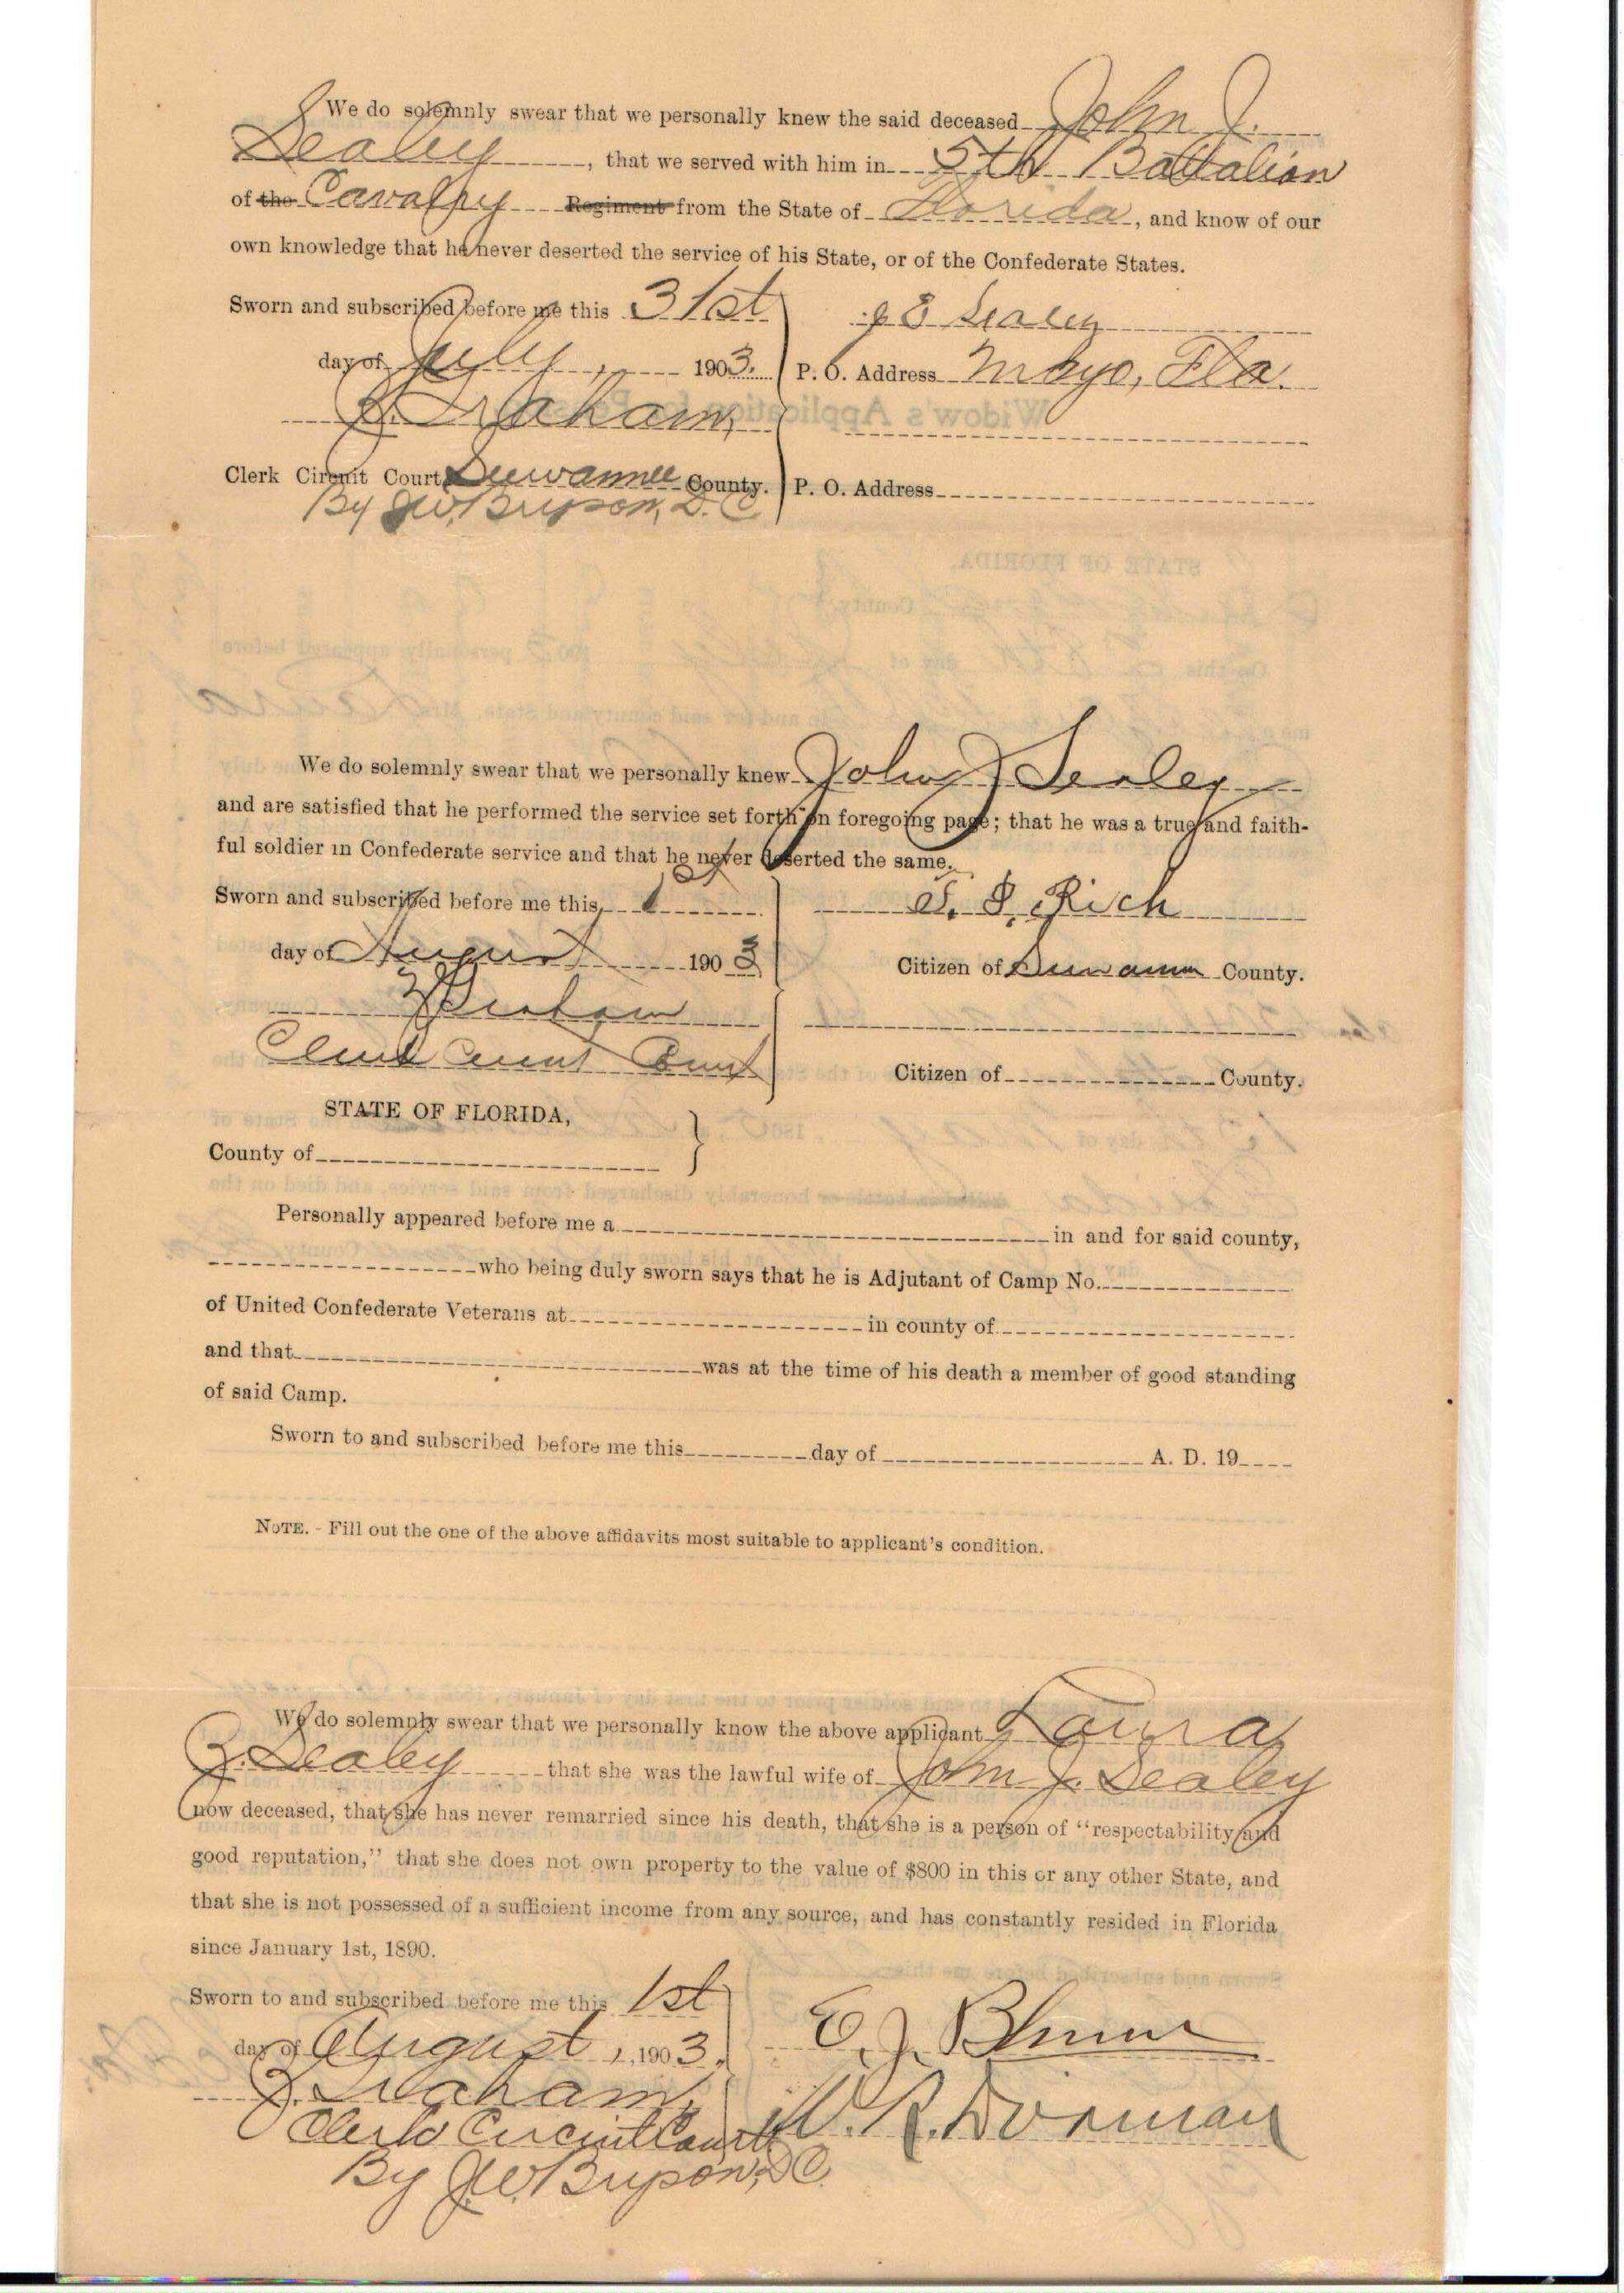 We do solemnly swear that we personally knew the said deceased John J.
Sealey, that we served with him in 5th Battalion
of the Cavalry Regiment from the State of Florida, and know of our
own knowledge that he never deserted the service of his State, or of the Confederate States.
Sworn and subscribed before me this 31st
J E Sealey
day of July, 1903.
P. O. Address Mayo, Fla.
Graham,
Clerk Circuit Court Suwannee County.
P. O. Address
By J.W. Bryson, D. C.
We do solemnly swear that we personally knew John J Sealey
and are satisfied that he performed the service set forth on foregoing page; that he was a true and faith-
ful soldier in Confederate service and that he never deserted the same.
Sworn and subscribed before me this 1st
Rich
day of August 1903
Citizen of Suwannee County.
Graham
Clerk Circuit Court
Citizen of County.
STATE OF FLORIDA,
County of
Personally appeared before me a in and for said county,
who being duly sworn says that he is Adjutant of Camp No.
of United Confederate Veterans at in county of
and that was at the time of his death a member of good standing
of said Camp.
Sworn to and subscribed before me this day of A. D. 19
NOTE. - Fill out the one of the above affidavits most suitable to applicant's condition.
We do solemnly swear that we personally know the above applicant Laura
Z. Sealey that she was the lawful wife of John J. Sealey
now deceased, that she has never remarried since his death, that she is a person of “respectability and
good reputation,” that she does not own property to the value of $800 in this or any other State, and
that she is not possessed of a sufficient income from any source, and has constantly resided in Florida
since January 1st, 1890.
Sworn to and subscribed before me this 1st
day of August, 1903.
E. J. Blume
Graham,
W. R. Dorman
Clerk Circuit Court
By J.W. Bryson, D C.